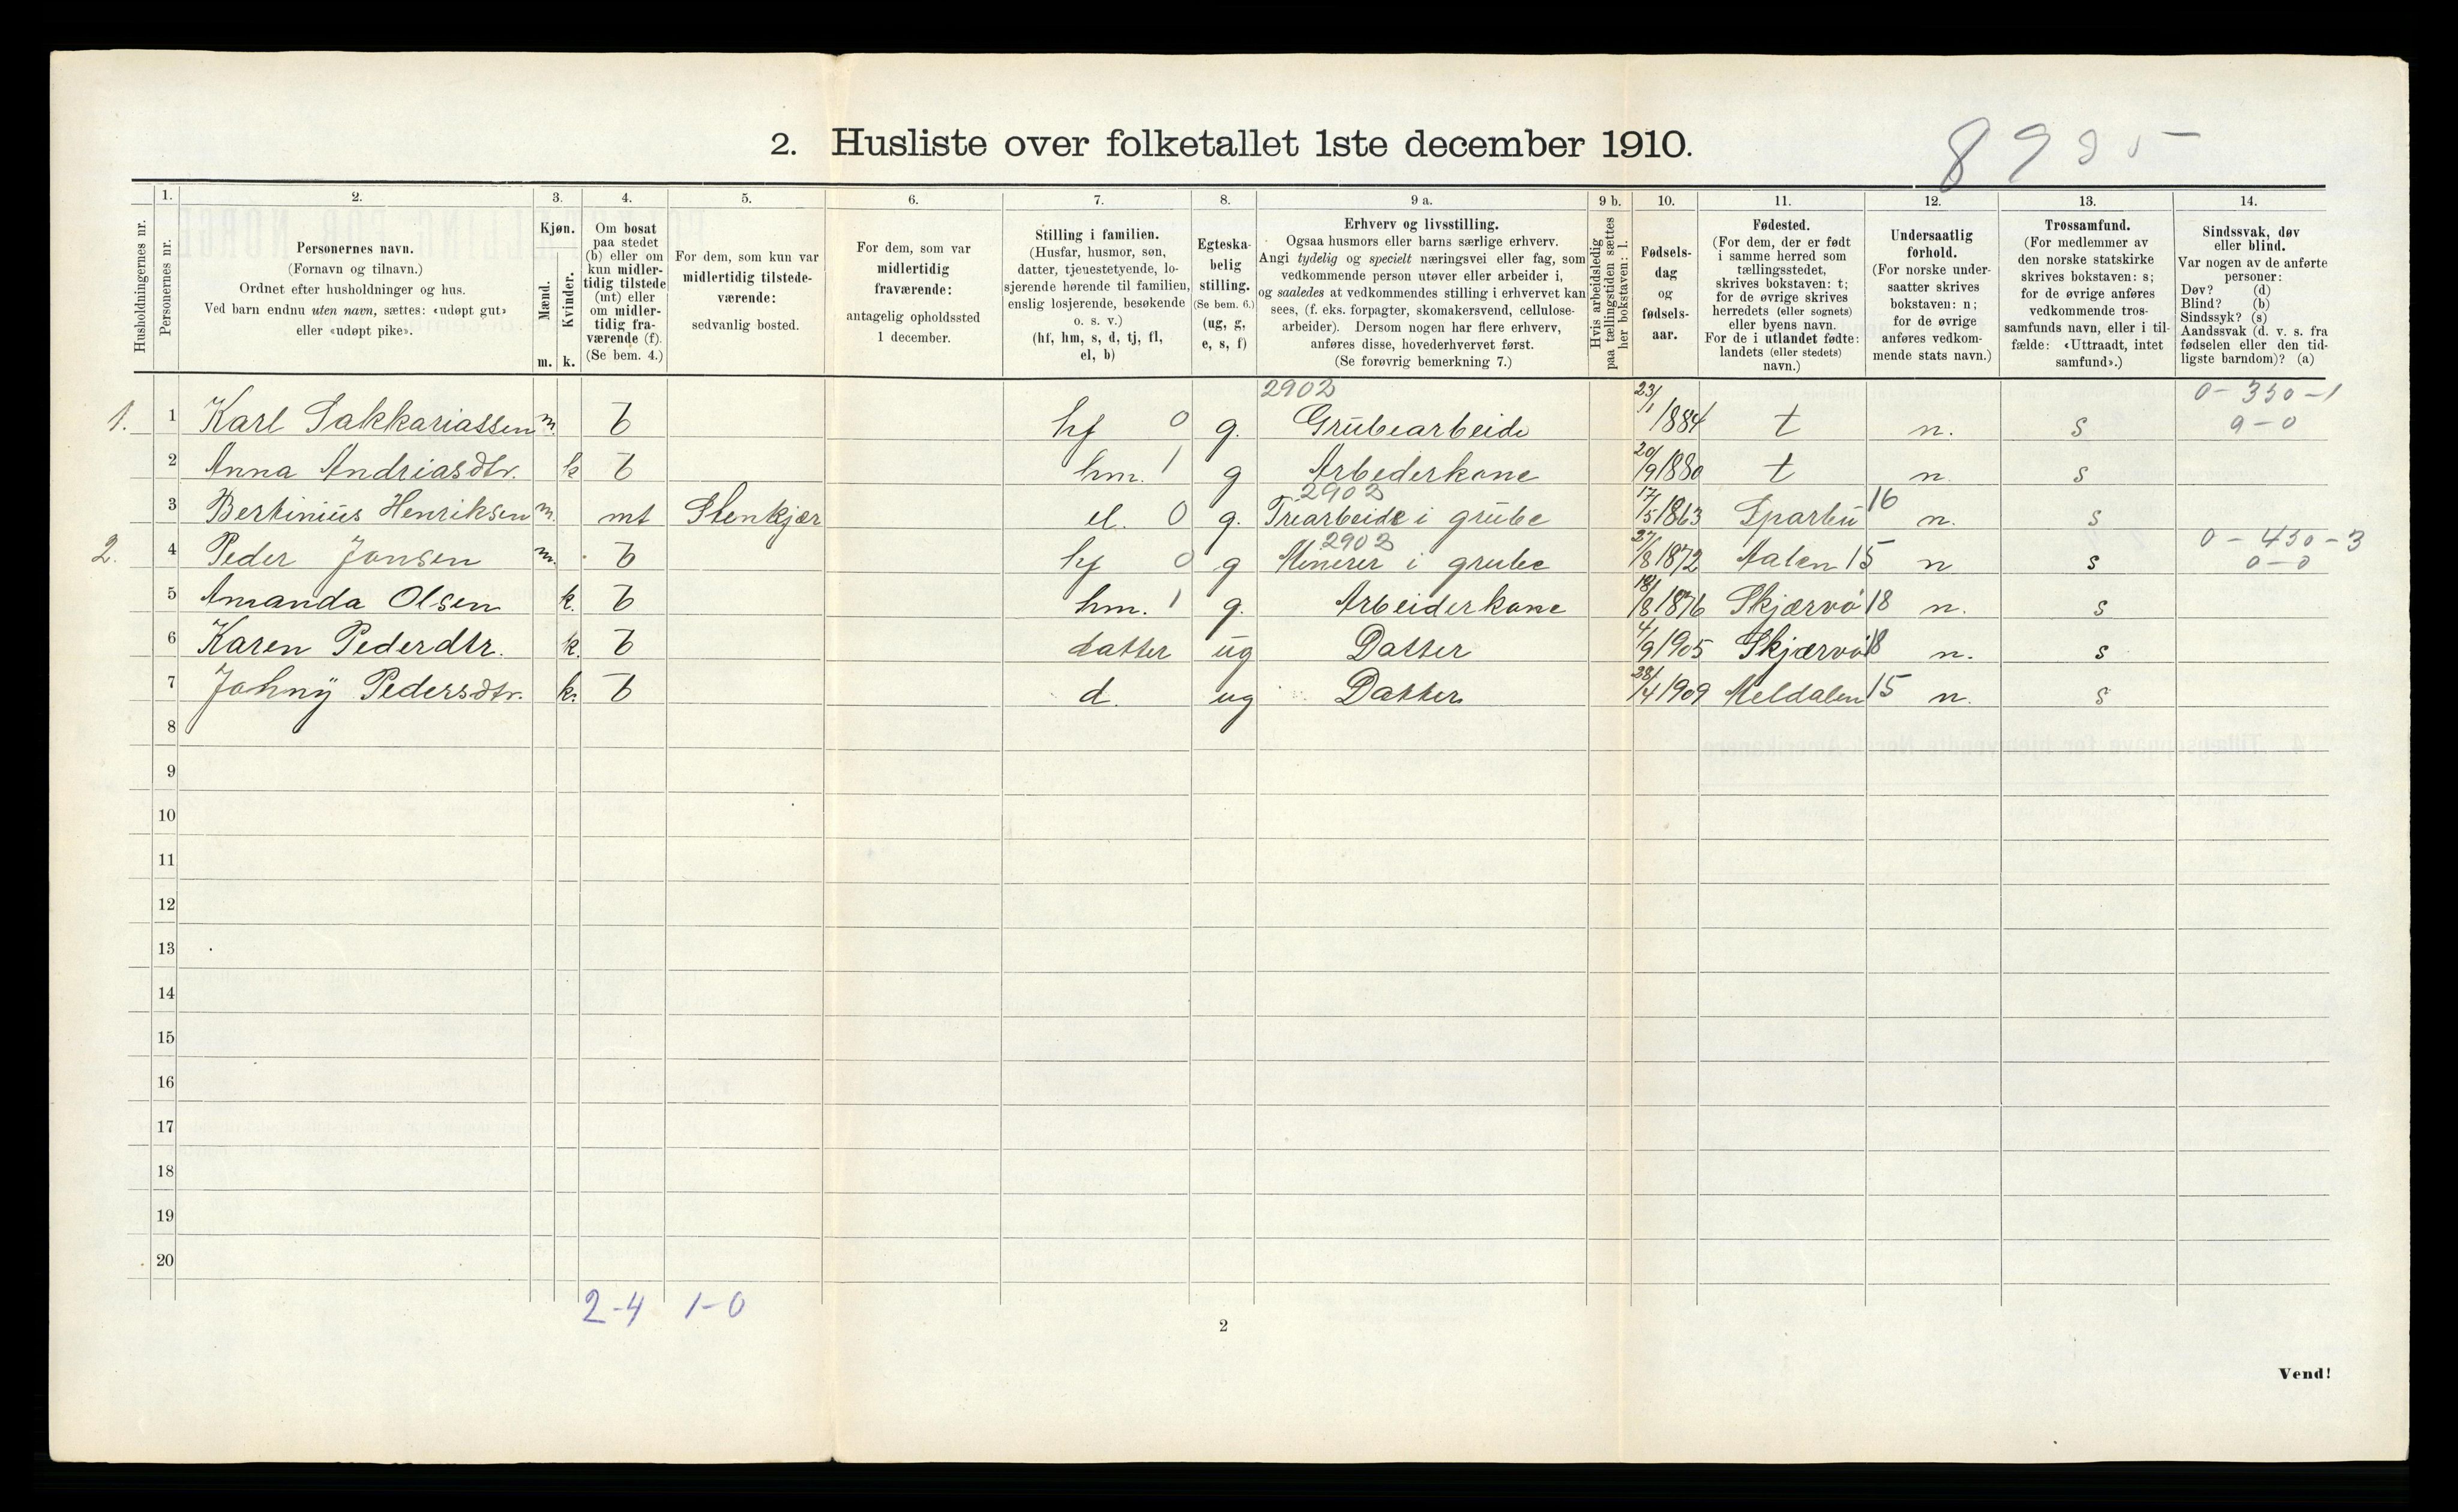 2. Husliste over folketallet 1ste december 1910.
Husholdningernes nr.
1. Personernes nr.
2. Personernes navn.
(Fornavn og tilnavn.)
Ordnet efter husholdninger og hus.
Ved barn endnu uten navn, sættes: «udøpt gut»
eller «udøpt pike».
3. Kjøn.
Mænd. m.
Kvinder. k.
4. Om bosat
paa stedet
(b) eller om
kun midler-
tidig tilstede
(mt) eller
om midler-
tidig fra-
værende (f).
(Se bem. 4.)
5. For dem, som kun var
midlertidig tilstede-
værende:
sedvanlig bosted.
6. For dem, som var
midlertidig
fraværende:
antagelig opholdssted
1 december.
7. Stilling i familien.
(Husfar, husmor, søn,
datter, tjenestetyende, lo-
sjerende hørende til familien,
enslig losjerende, besøkende
o. s. v.)
(hf, hm, s, d, tj, fl,
el, b)
8. Egteska-
belig
stilling.
(Se bem. 6.)
(ug, g,
e, s, f)
9 a. Erhverv og livsstilling.
Ogsaa husmors eller barns særlige erhverv.
Angi tydelig og specielt næringsvei eller fag, som
vedkommende person utøver eller arbeider i,
og saaledes at vedkommendes stilling i erhvervet kan
sees, (f. eks. forpagter, skomakersvend, cellulose-
arbeider). Dersom nogen har flere erhverv,
anføres disse, hovederhvervet først.
(Se forøvrig bemerkning 7.)
9 b. Hvis arbeidsledig
paa tællingstiden sættes
her bokstaven: l.
10. Fødsels-
dag
og
fødsels-
aar.
11. Fødested.
(For dem, der er født
i samme herred som
tællingsstedet,
skrives bokstaven: t;
for de øvrige skrives
herredets (eller sognets)
eller byens navn.
For de i utlandet fødte:
landets (eller stedets)
navn.)
12. Undersaatlig
forhold.
(For norske under-
saatter skrives
bokstaven: n;
for de øvrige
anføres vedkom-
mende stats navn.)
13. Trossamfund.
(For medlemmer av
den norske statskirke
skrives bokstaven: s;
for de øvrige anføres
vedkommende tros-
samfunds navn, eller i til-
fælde: «Uttraadt, intet
samfund».)
14. Sindssvak, døv
eller blind.
Var nogen av de anførte
personer:
Døv? (d)
Blind? (b)
Sindssyk? (s)
Aandssvak (d. v. s. fra
fødselen eller den tid-
ligste barndom)? (a)
2902 0-350-1
1. 1 Karl Sakkariassen m. b hf 0 g. Grubearbeide 23/1 1884 t n. s 0-0
2 Anna Andriasdtr. k b hm. 1 g Arbederkone 20/9 1880 t n s
2902
3 Bertinius Henriksen m. mt Stenkjær el. 0 g. Trearbeide i grube 17/5 1863 Sparbu 16 n. s
2902 0-450-3
2. 4 Peder Jansen m. b hf 0 g Minerer i grube 27/8 1872 Aalen 15 n s 0-0
5 Amanda Olsen k. b hm. 1 g. Arbeiderkone 18/8 1876 Skjærvö 18 n. s
6 Karen Pederdtr. k. b datter ug Datter 4/9 1905 Skjærvö 18 n. s
7 Johny Pedersdtr. k. b d. ug Datter 28/4 1909 Meldalen 15 n. s
8
9
10
11
12
13
14
15
16
17
18
19
20
2-4 1-0
2
Vend!